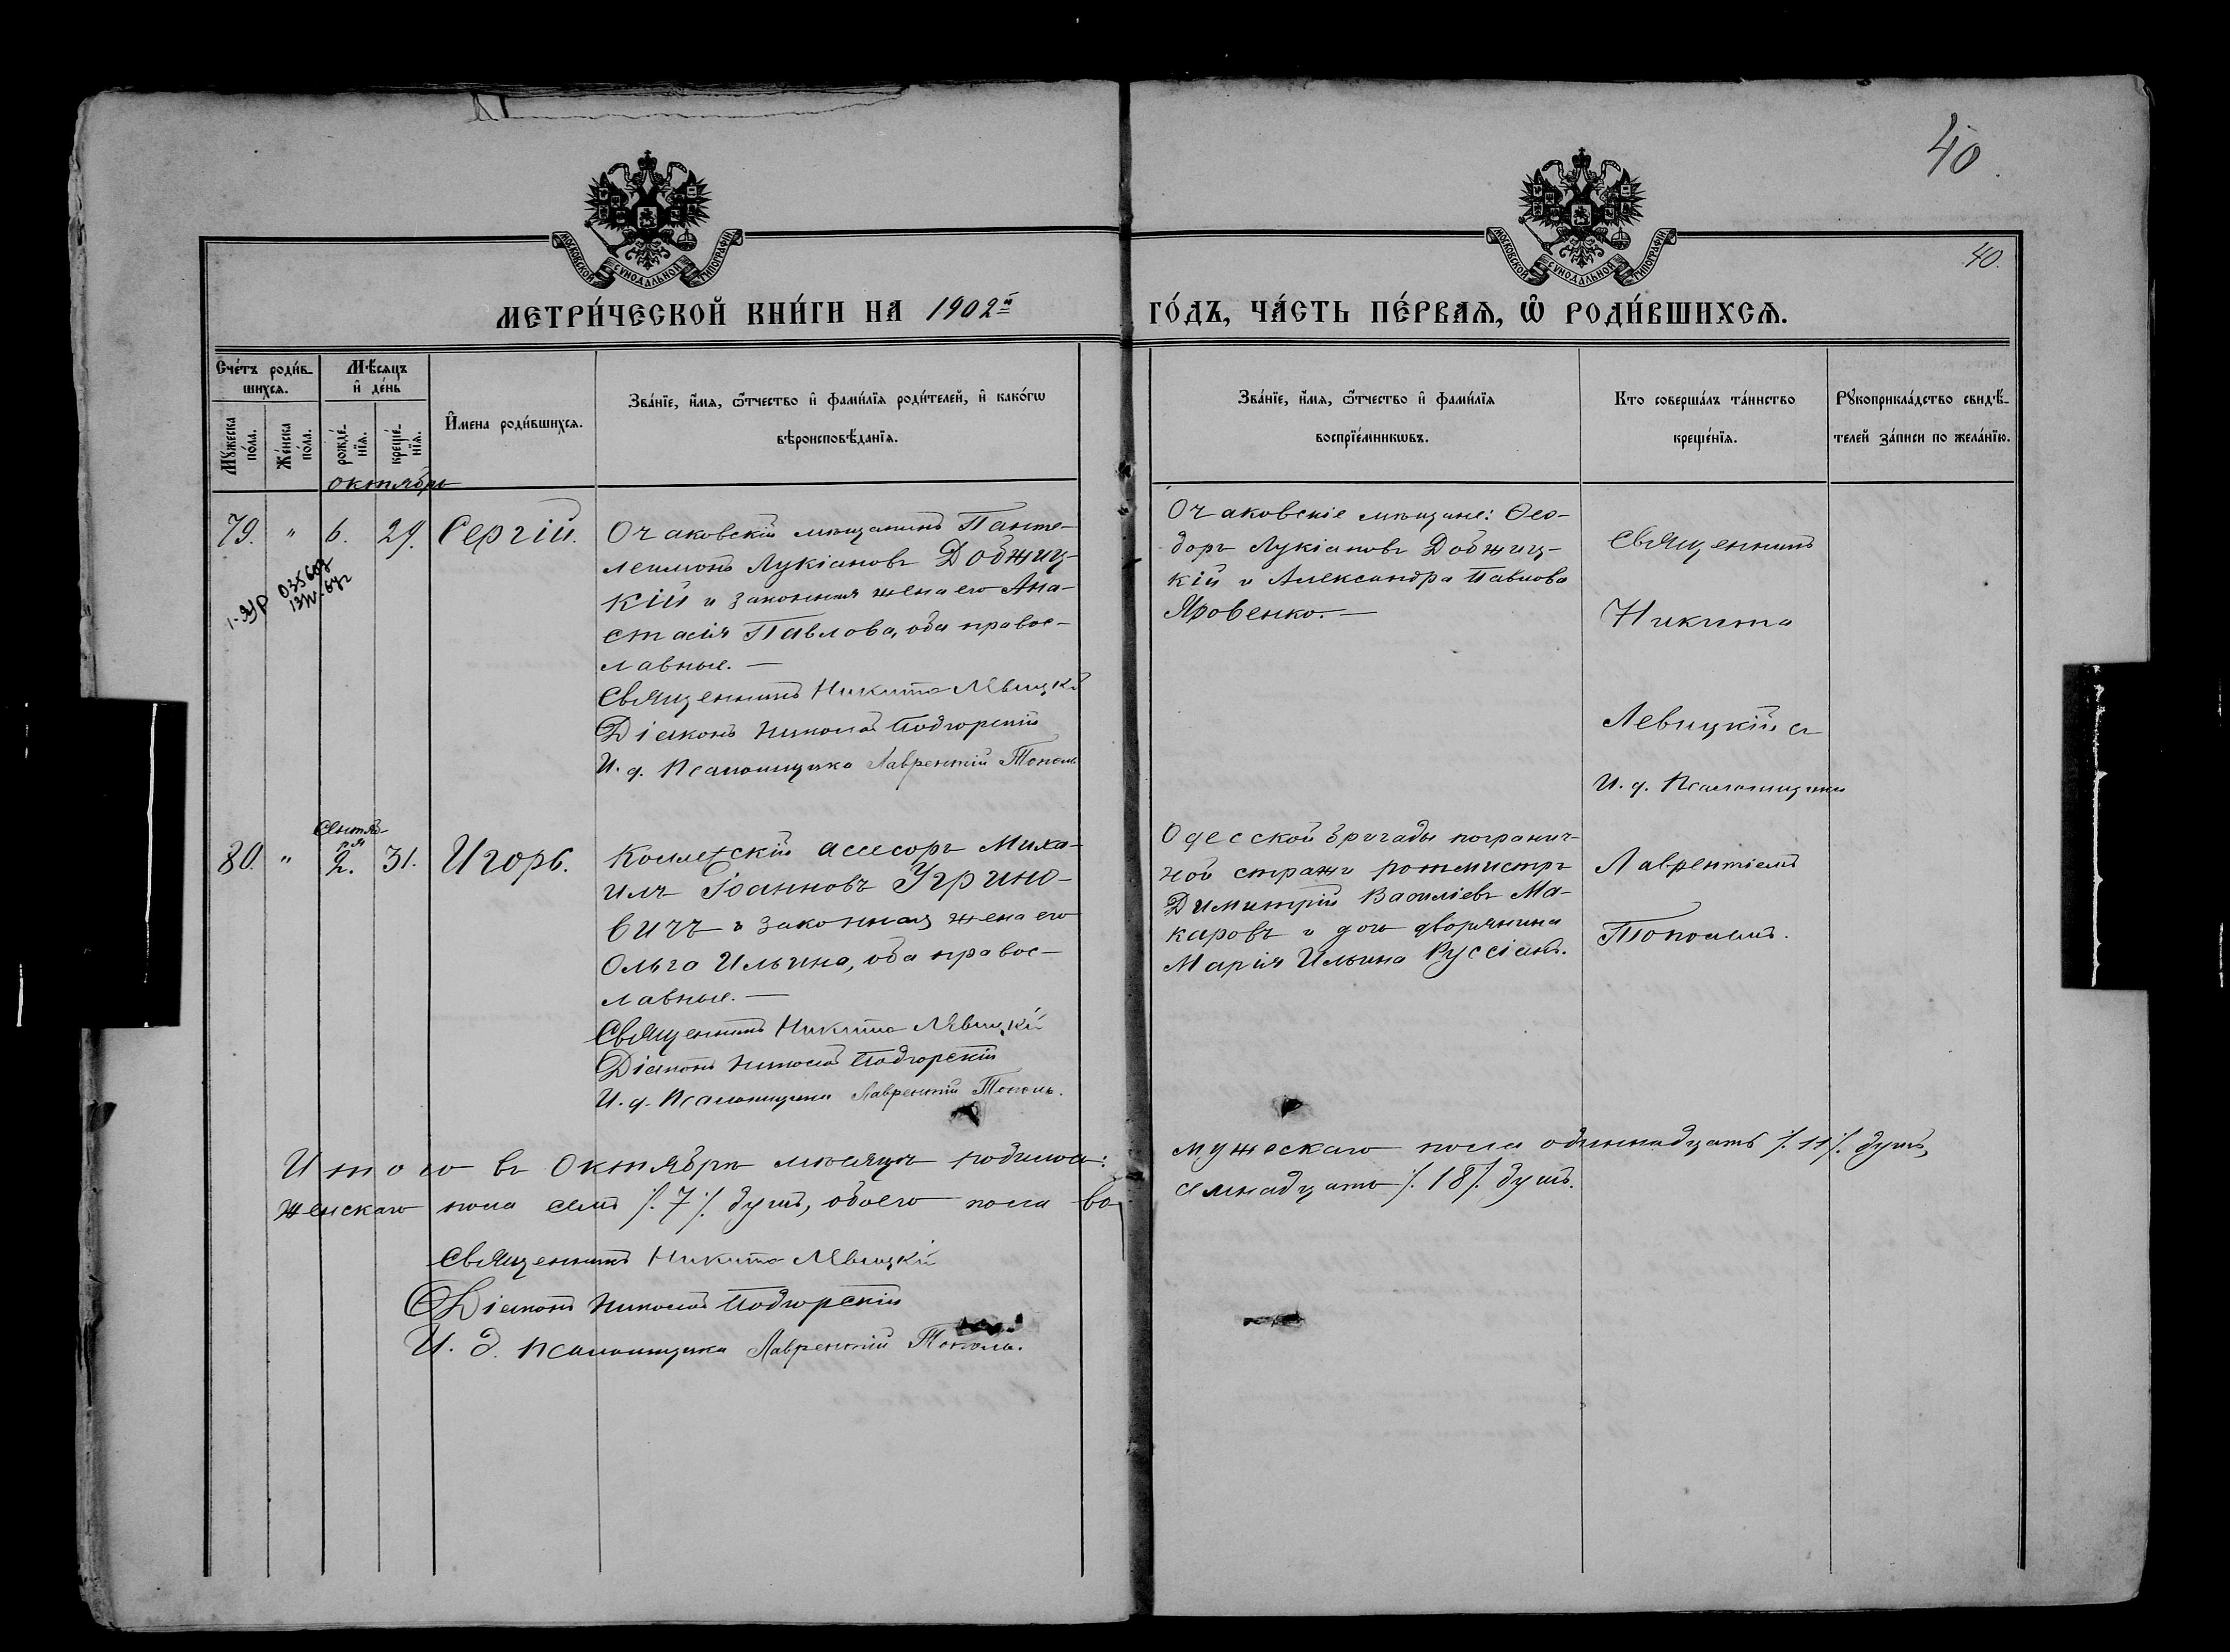 40
МОСКОВСКОЙ СУНОДАЛЬНОЙ ТИПОГРАФІИ
МОСКОВСКОЙ СУНОДАЛЬНОЙ ТИПОГРАФІИ
40.
МЕТРИ́ЧЕСКОЙ КНИ́ГИ НА 1902й ГО́ДЪ, ЧА́СТЬ ПЕ́РВАЯ, Ѿ РОДИ́ВШИХСЯ.
Сче́тъ роди́в-
шихся.
Мѣ́сяцъ
и҆ де́нь
Му́жеска по́ла.
Же́нска по́ла.
рожде́-
нїя.
креще́-
нїя.
И҆мена роди́вшихся.
Зва́нїе, и҆́мя, ѻ҆́тчество и҆ фами́лїя роди́телей, и҆ како́гѡ
вѣроисповѣ́данїя.
Зва́нїе, и҆́мя, ѻ҆́тчество и҆ фами́лїя
воспрїе́мникѡвъ.
Кто соверша́лъ та́инство
креще́нїя.
Рукоприкла́дство свидѣ́-
телей за́писи по жела́нїю.
октябрь
79. " 6. 29. Сергій.
Очаковскій мѣщанинъ Панте-
леимонъ Лукіановъ Добжиц-
кій и законная жена его Ана-
стасія Павлова, оба правос-
лавные. —
Священникъ Никита Левицкій
Діаконъ Николай Подгорскій
И. д. Псаломщика Лаврентій Тополь
Очаковскіе мѣщане: Ѳео-
доръ Лукіановъ Добжиц-
кій и Александра Павлова
Яровенко. —
Священникъ
Никита
Левицкій съ
И. д. Псаломщика
Лаврентіемъ
Тополемъ.
80. " Сентяб-
ря
2. 31. Игорь.
Коллежскій ассесоръ Миха-
илъ Іоанновъ Угрино-
вичъ и законная жена его
Ольга Ильина, оба правос-
лавные. —
Священникъ Никита Левицкій
Діаконъ Николай Подгорскій
И. д. Псаломщика Лаврентій Тополь.
Одесской бригады погранич-
ной стражи ротмистръ
Димитрій Василіевъ Ма-
каровъ и дочь дворянина
Марія Ильина Руссіанъ.
Итого въ Октябрѣ мѣсяцѣ родилось: мужескаго пола одиннадцать ./. 11 ./. душъ,
женскаго пола семь ./. 7 ./. душъ, обоего пола во-
семнадцать ./. 18 ./. душъ.
Священникъ Никита Левицкій
Діаконъ Николай Подгорскій
И. д. Псаломщика Лаврентій Тополь.